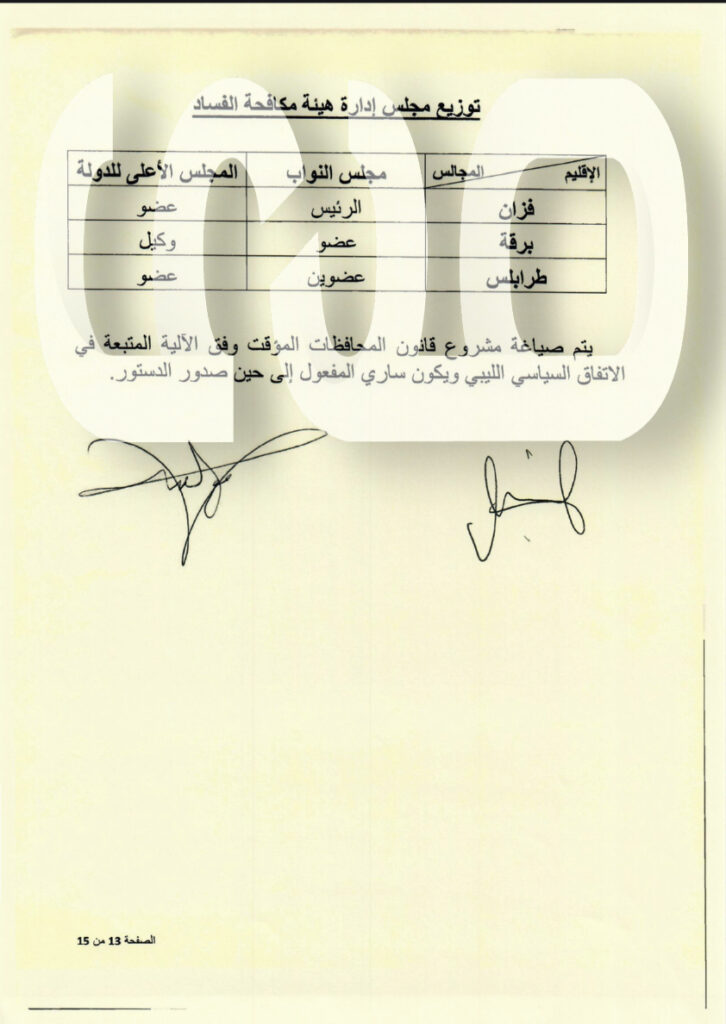 توزيع مجلس إدارة هيئة مكافحة الفساد
الإقليم المجالس مجلس النواب المجلس الأعلى للدولة
فزان الرئيس عضو
برقة عضو وكيل
طرابلس عضوين عضو
يتم صياغة مشروع قانون المحافظات المؤقت وفق الآلية المتبعة في
الاتفاق السياسي الليبي ويكون ساري المفعول إلى حين صدور الدستور.
الصفحة 13 من 15